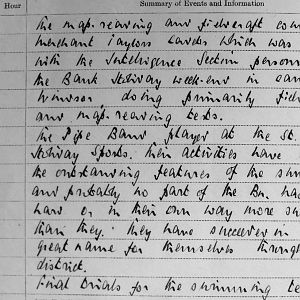 Hour Summary of Events and Information
The map-reading and fieldcraft com
Merchant Taylors Cadets which was
with the Intelligence Section person
the Bank Holiday week-end in cam
Windsor, doing primarily fiel
and map-reading tests.
The Pipe Band played at the St.
Holiday Sports. Their activities have
the outstanding features of the sum
and probably no part of the Bn. had
hard or in their own way more su
than they. They have succeeded in
great name for themselves throug
district.
Final trials for the swimming te